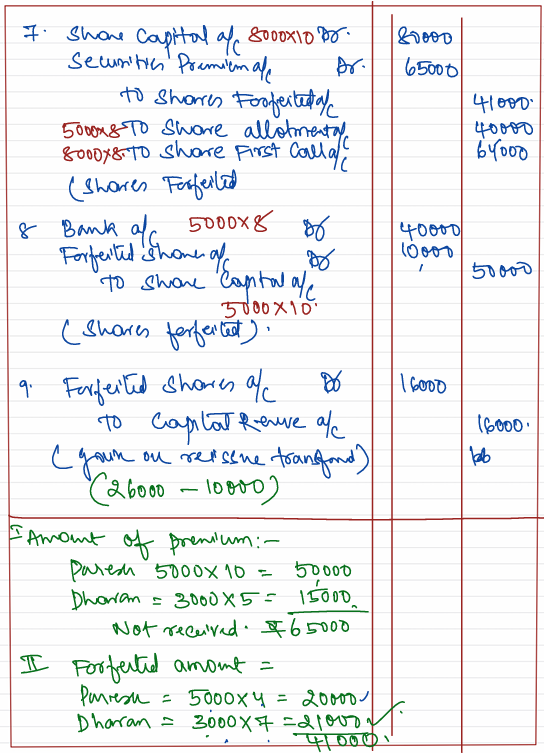 7. Share Capital a/c 8000x10 Dr. 80000
Securities Premium a/c Dr. 65000
To Shares Forfeited a/c 41000.
5000x8 To Share allotment a/c 40000
8000x8. To Share First Call a/c 64000
(Shares Forfeited
8 Bank a/c 5000x8 Dr 40000
Forfeited Shares a/c Dr 10000
To Share Capital a/c 50000
5000x10.
(Shares forfeited).
9. Forfeited Shares a/c Dr 16000
To Capital Reserve a/c 16000.
(gain on reissue transfered)
(26000 - 10000)
I Amount of premium:-
Paresh 5000x10 = 50,000
Dharan = 3000x5 = 15000.
Not received. ₹65000
II Forfeited amount =
Paresh = 5000x4 = 20000
Dharan = 3000x7 = 21000
41000.